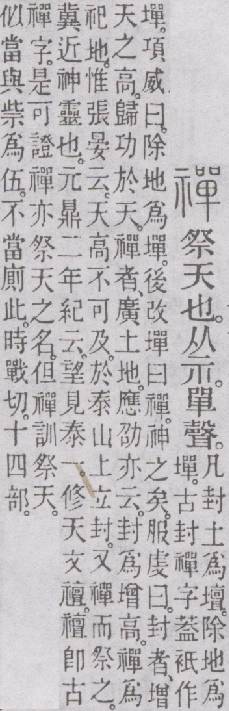 禪 祭天也。从示。單聲。
凡封土爲壇。除地爲
墠。古封禪字蓋衹作
墠。項威曰。除地爲墠。後改墠曰禪。神之矣。服虔曰。封者、增
天之高。歸功於天。禪者、廣土地。應劭亦云。封爲增高。禪爲
祀地。惟張晏云。天高不可及。於泰山上立封。又禪而祭之。
冀近神靈也。元鼎二年紀云。望見泰一。修天文襢。襢卽古
禪字。是可證禪亦祭天之名。但禪訓祭天。
似當與祡爲伍。不當廁此。時戰切。十四部。